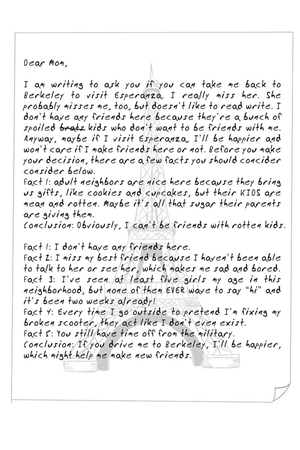 Dear Mom,
I am writing to ask you if you can take me back to
Berkeley to visit Esperanza. I really miss her. She
probably misses me, too, but doesn't like to read write. I
don't have any friends here because they're a bunch of
spoiled brats kids who don't want to be friends with me.
Anyway, maybe if I visit Esperanza, I'll be happier and
won't care if I make friends here or not. Before you make
your decision, there are a few facts you should concider
consider below.
Fact 1: adult neighbors are nice here because they bring
us gifts, like cookies and cupcakes, but their KIDS are
mean and rotten. Maybe it's all that sugar their parents
are giving them.
Conclusion: Obviously, I can't be friends with rotten kids.
Fact 1: I don't have any friends here.
Fact 2: I miss my best friend because I haven't been able
to talk to her or see her, which makes me sad and bored.
Fact 3: I've seen at least five girls my age in this
neighborhood, but none of them EVER wave to say "hi" and
it's been two weeks already!
Fact 4: Every time I go outside to pretend I'm fixing my
broken scooter, they act like I don't even exist.
Fact 5: You still have time off from the military.
Conclusion: If you drive me to Berkeley, I'll be happier,
which might help me make new friends.